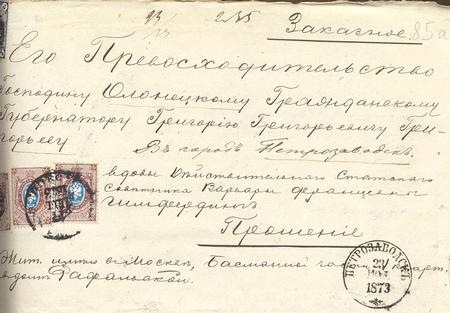 Заказное 85а
Его Превосходительство
Господину Олонецкому Гражданскому
Губернатору Григорію Григорьевичу Гри-
горьеву
Въ городъ Петрозаводскъ.
вдовы Действительного Статского
советника Варвары Францевны
Гильфердингъ
Прошеніе
Жит. имею въ Москве, Басманной части
въ доме
ПЕТРОЗАВОДСКЪ
1873